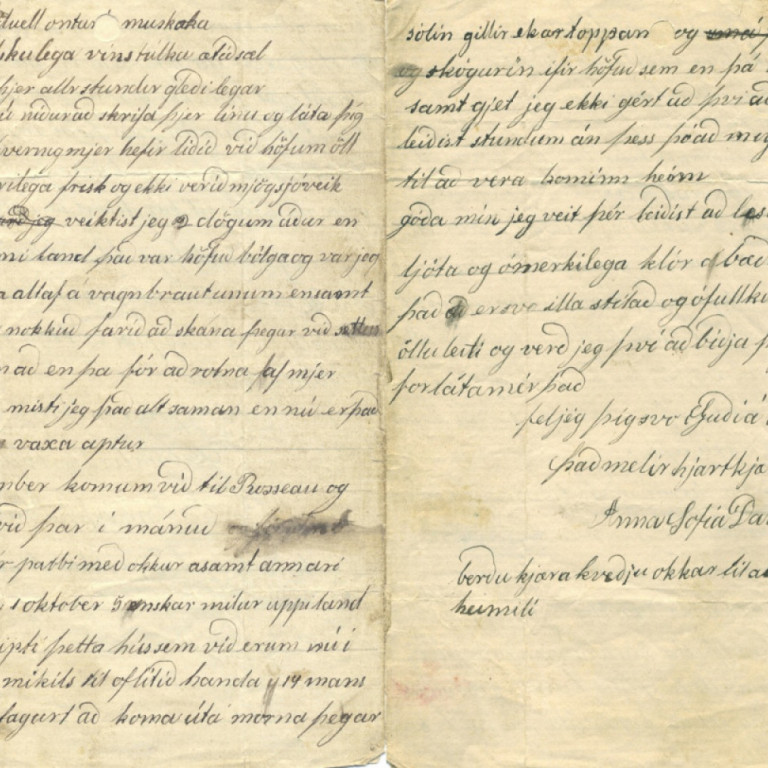 muskoka
vinstulka
hjer allr stundir gledilegar
nidur ad skrifa þjer linu og láta þig
mjer hefir lidid vid höfum öll
frisk og ekki verid mjög sjóveik
veiktist jeg 2 dögum ádur en
land þad var höfud bólga og var jeg
altaf á vagnbrautunum en samt
nokkud farid ad skána þegar vid settum
ad en þa fór ad rotna af mjer
misti jeg þad alt saman en nú er þad
vaxa aptur
komum vid til Rosseau og
vid þar i mánud
pabbi med okkur asamt annari
1 oktober 5 enskar milur uppi land
þetta hús sem vid erum nú i
mikils til of litid handa 14 mans
fagurt ad koma út á morna þegar
sólin gillir ekartoppan og
og skógurin ifir höfud sem en þá
samt gjet jeg ekki gért ad þvi ad
leidist stundum án þess þó ad mig
til ad vera hominn heim
góda min jeg veit þér leidist ad
ljóta og ómerkilega klór
þad er svo illa stilad og ófullk
öllu leiti og verd jeg þvi ad bidja þ
forláta mér þad
fel jeg þig svo Gudi á
þad melir hjartkja
Anna Sofia Da
berdu kjæra kvedju okkar til a
heimili